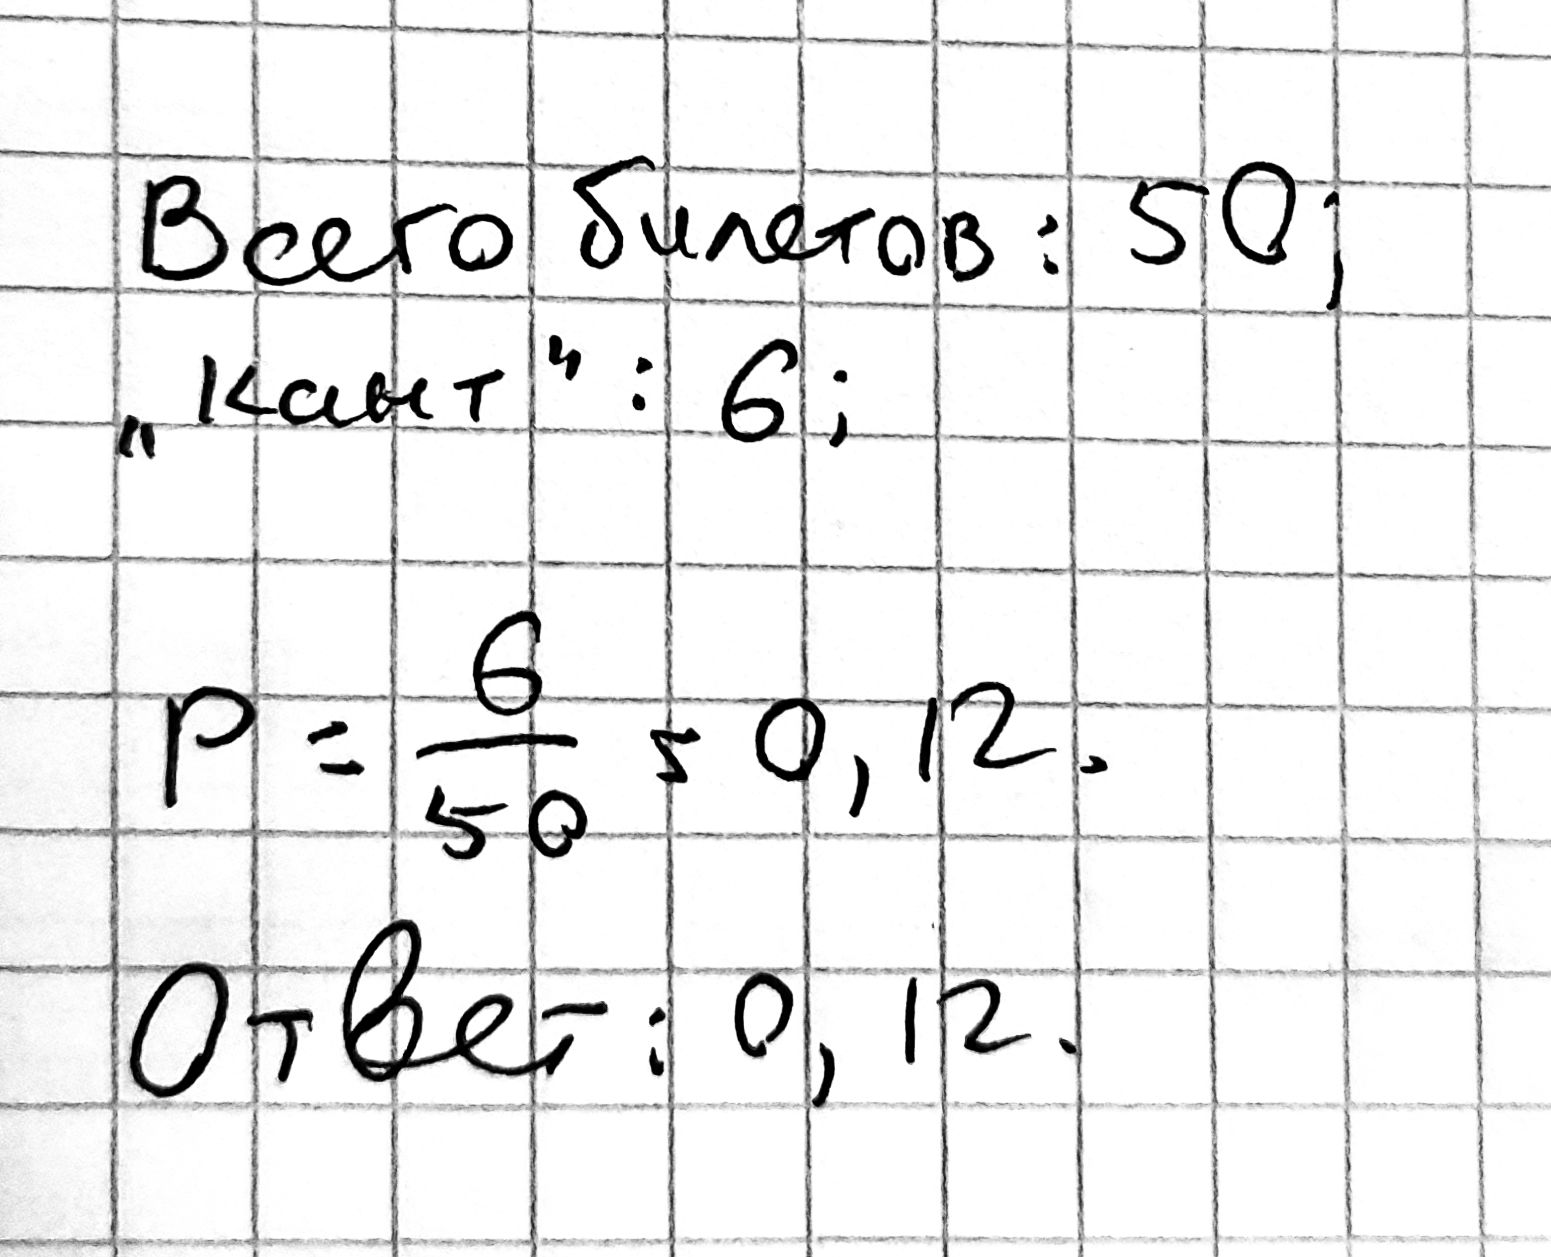 Всего билетов: 50;
„Кант“: 6;
P = 6/50 = 0,12.
Ответ: 0,12.